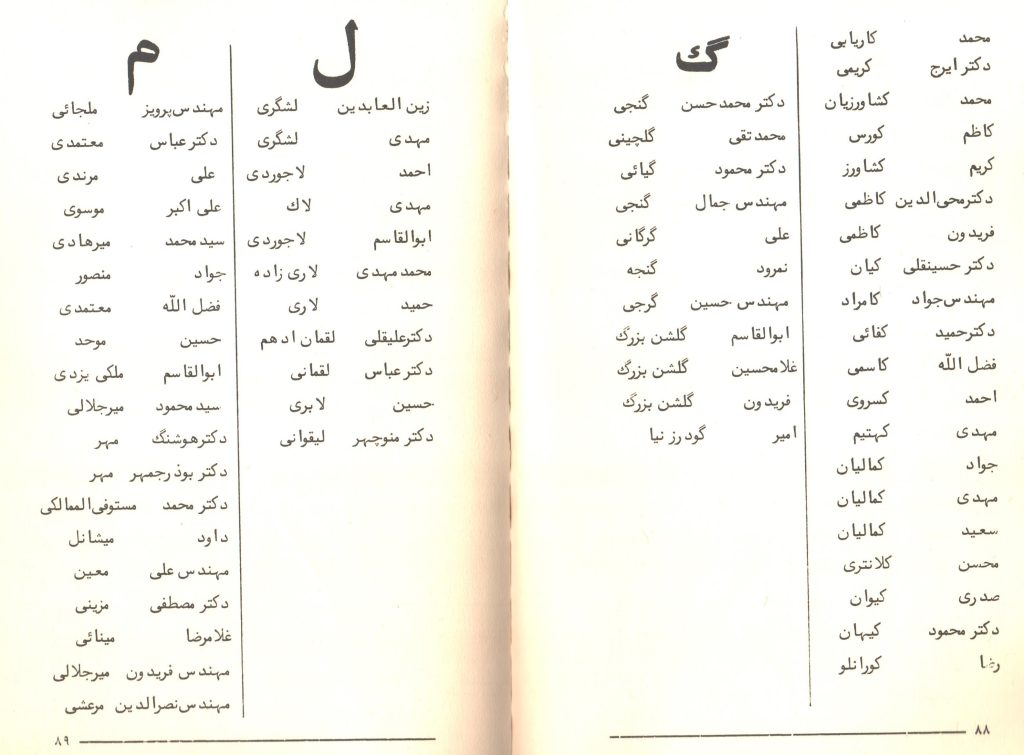 محمد کاریابی
دکتر ایرج کریمی
محمد کشاورزیان
کاظم کورس
کریم کشاورز
دکتر محی الدین کاظمی
فریدون کاظمی
دکتر حسینقلی کیان
مهندس جواد کامراد
دکتر حمید کفائی
فضل اللّه کاسمی
احمد کسروی
مهدی کهتیم
جواد کمالیان
مهدی کمالیان
سعید کمالیان
محسن کلانتری
صدری کیوان
دکتر محمود کیهان
رضا کورانلو
گ
دکتر محمد حسن گنجی
محمد تقی گلچینی
دکتر محمود گیائی
مهندس جمال گنجی
علی گرگانی
نمرود گنجه
مهندس حسین گرجی
ابوالقاسم گلشن بزرگ
غلامحسین گلشن بزرگ
فریدون گلشن بزرگ
امیر گودرز نیا
۸۸
ل
زین العابدین لشگری
مهدی لشگری
احمد لاجوردی
مهدی لاك
ابوالقاسم لاجوردی
محمد مهدی لاری زاده
حمید لاری
دکتر علیقلی لقمان ادهم
دکتر عباس لقمانی
حسین لابری
دکتر منوچهر لیقوانی
م
مهندس پرویز ملجائی
دکتر عباس معتمدی
علی مرندی
علی اکبر موسوی
سید محمد میرهادی
جواد منصور
فضل اللّه معتمدی
حسین موحد
ابوالقاسم ملکی یزدی
سید محمود میرجلالی
دکتر هوشنگ مهر
دکتر بوذرجمهر مهر
دکتر محمد مستوفی الممالکی
داود میشانل
مهندس علی معین
دکتر مصطفی مزینی
غلامرضا مینائی
مهندس فریدون میرجلالی
مهندس نصرالدین مرعشی
۸۹